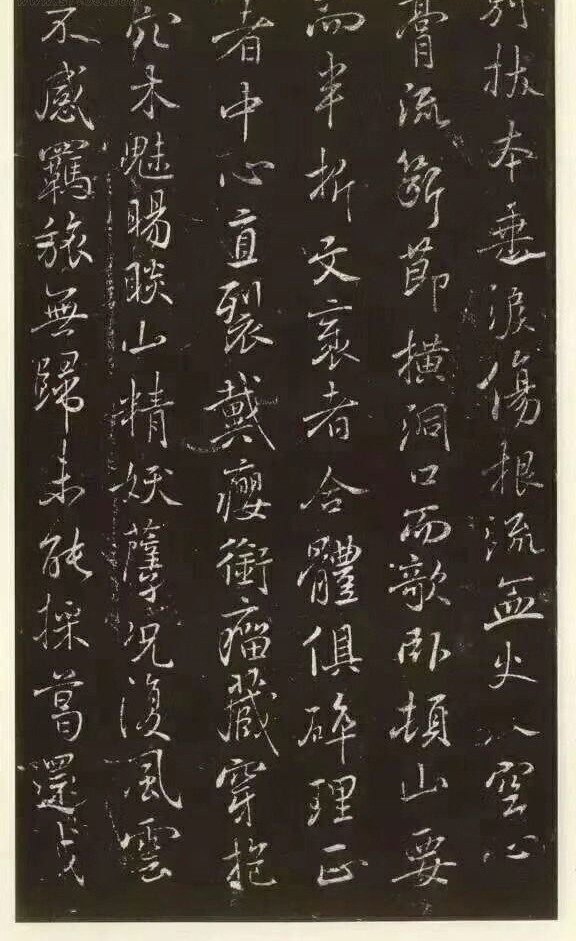 別拔本垂淚傷根流血火入空心
膏流斷節橫洞口而欹臥頓山要
而半折文袤者合體俱碎理正
者中心直裂戴癭銜瘤藏穿抱
穴木魅睗睒山精妖孽況復風雲
不感羈旅無歸未能採葛還成